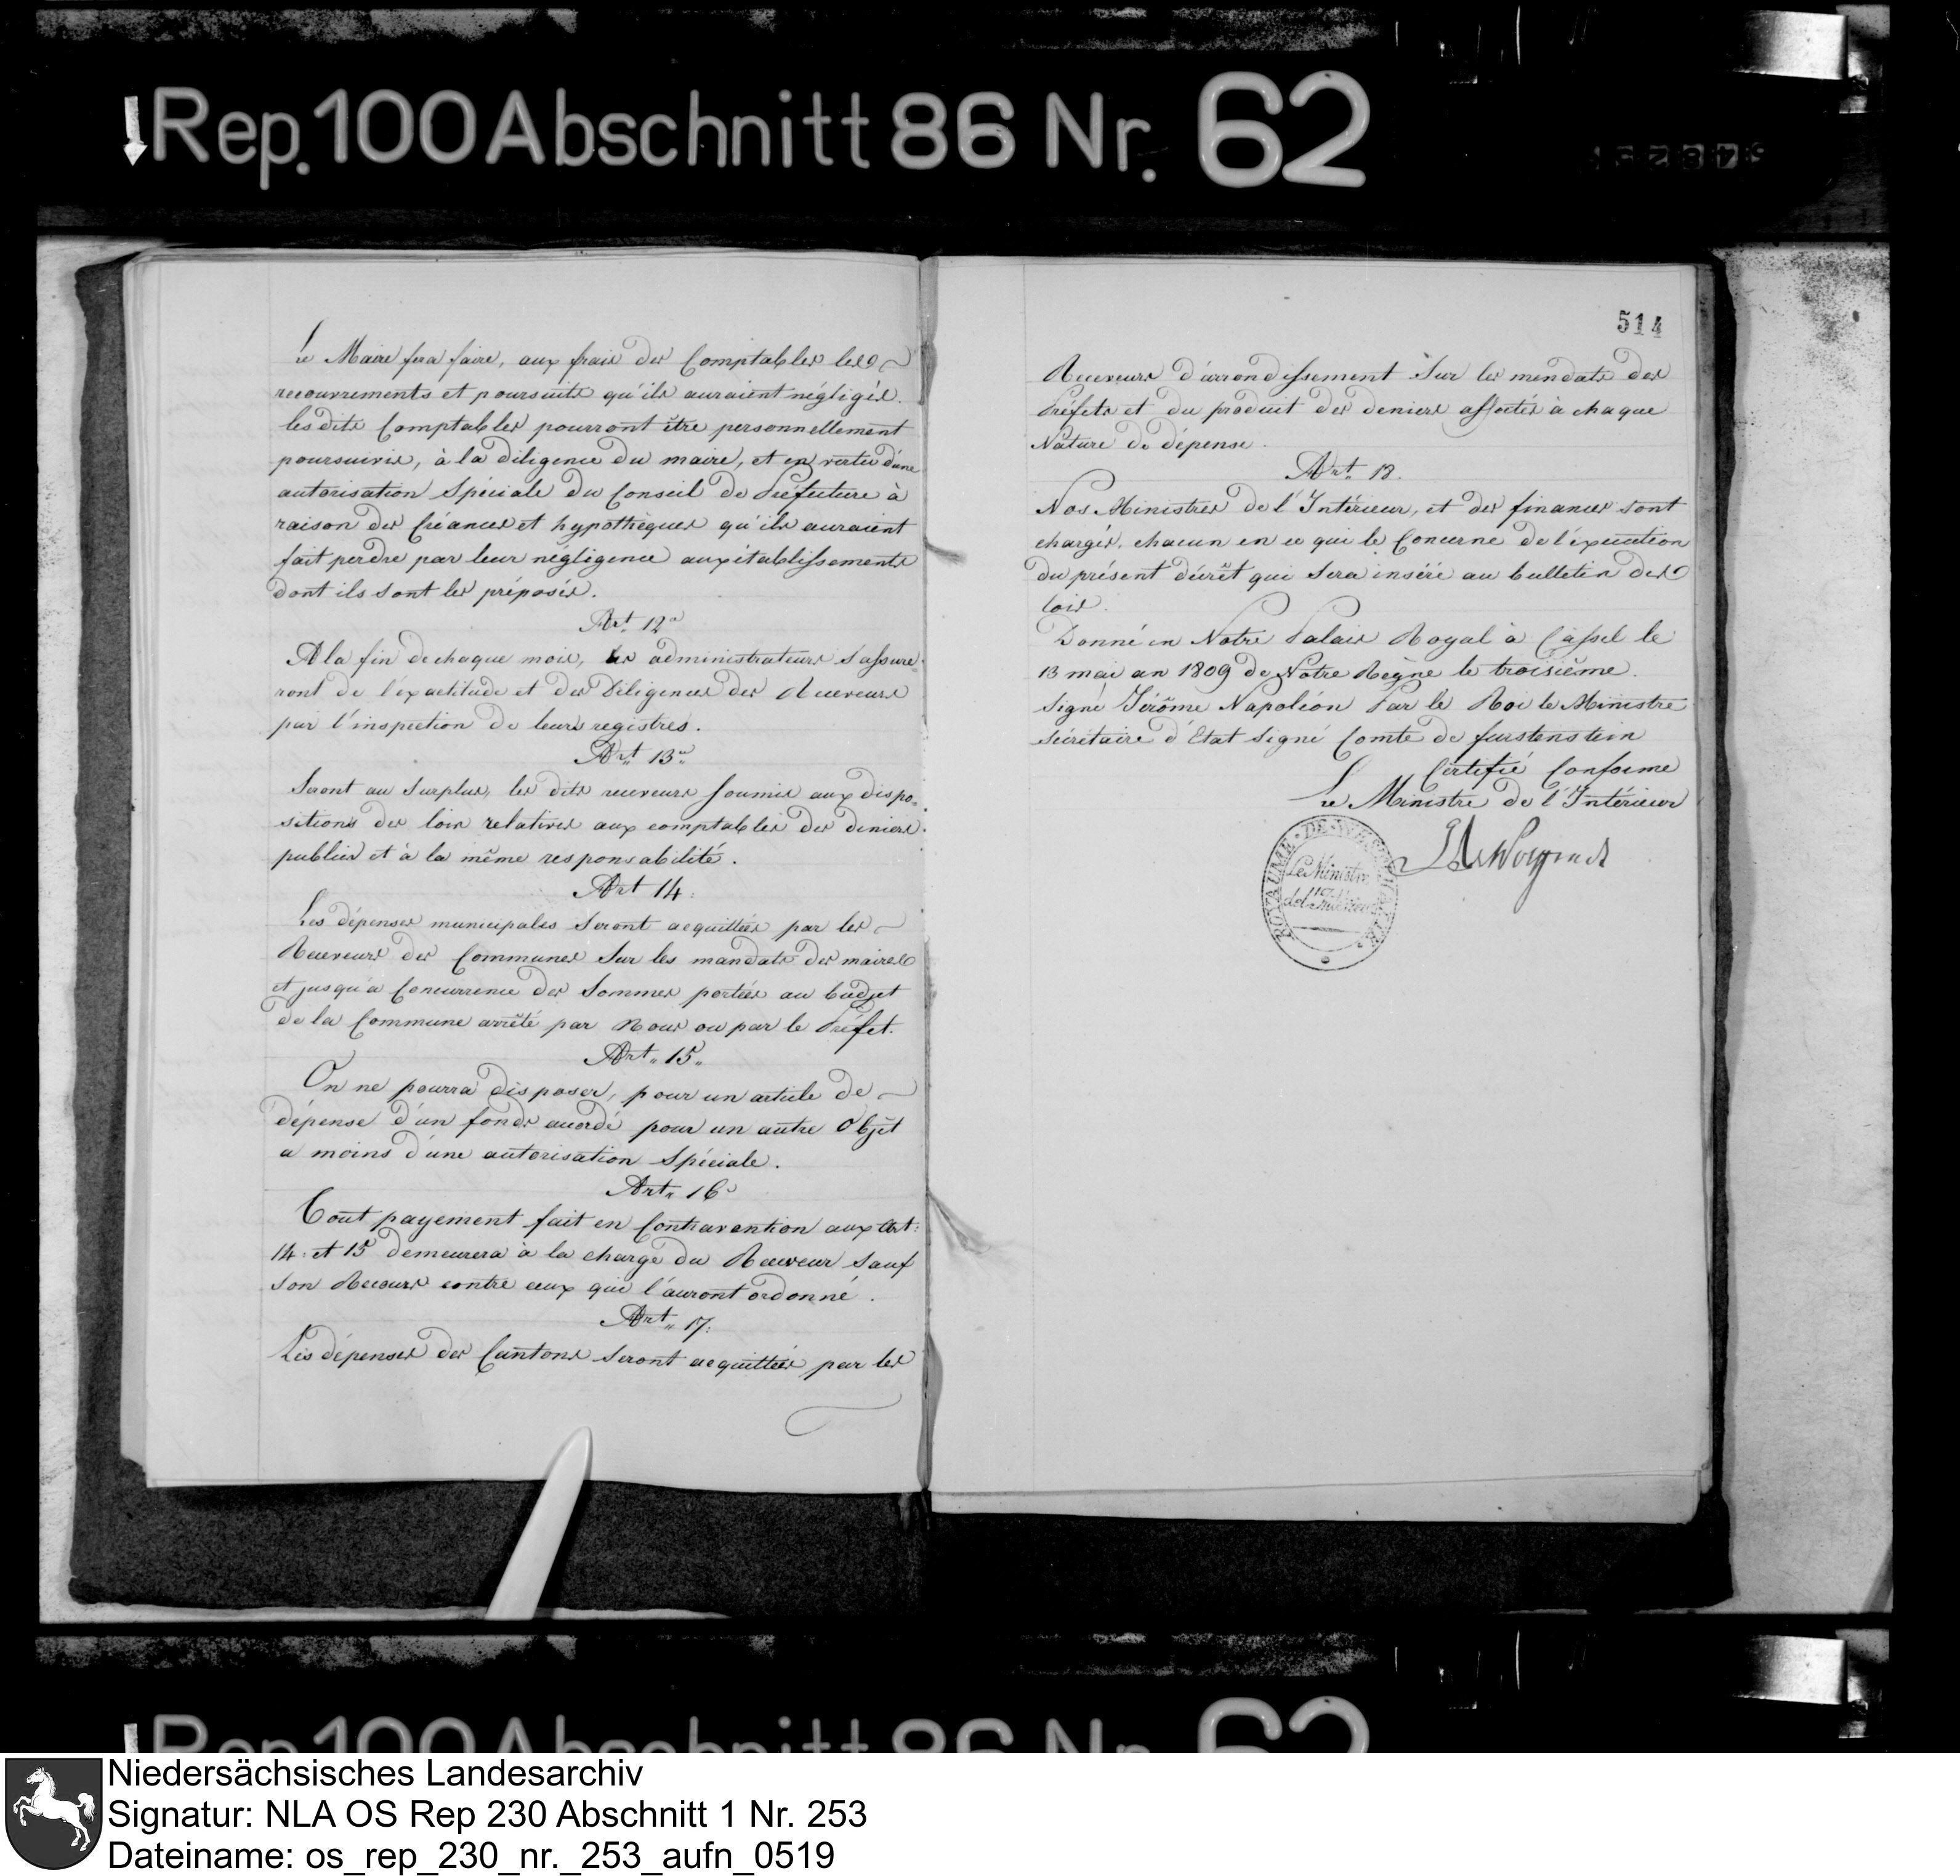 Rep. 100 Abschnitt 86 Nr. 62
Le Maire fera faire, aux frais des Comptables les
recouvrements et poursuits qu'ils auraient négligés.
les dits Comptables pourront être personnellement
poursuivis, à la diligence du maire, et en vertu d'une
autorisation Spéciale du Conseil de Préfecture à
raison des Créances et hypothèques qu'ils auraient
fait perdre par leur négligence aux établissements
dont ils sont les préposés.
Art. 12
A la fin de chaque mois, les administrateurs s'assure-
ront de l'exactitude et des Diligences des Receveurs
par l'inspection de leurs registres.
Art. 13
Seront au Surplus, les dits receveurs soumis aux dispo-
sitions des loix relatives aux comptables des deniers
publics et à la même responsabilité.
Art 14.
Les dépenses municipales Seront acquittées par les
Receveurs des Communes Sur les mandats des maires
et jusqu'à Concurrence des Sommes portées au budjet
de la Commune arrêté par Nous ou par le Préfet.
Art. 15.
On ne pourra disposer, pour un article de
dépense d'un fonds accordé pour un autre Objet
a moins d'une autorisation Spéciale.
Art. 16
Tout payement fait en Contravention aux Art:
14. et 15 demeurera à la charge du Receveur sauf
son Recours contre ceux qui l'auront ordonné.
Art. 17.
Les dépenses des Cantons Seront acquittées par les
514
Receveurs d'arrondissement Sur les mendats des
Préfets et du produit des deniers affectés à chaque
Nature de dépense.
Art. 18.
Nos Ministres de l'Intérieur, et des finances sont
chargés, chacun en ce qui le Concerne de l'éxecution
du présent décrêt qui Sera inséré au bulletin des
loix.
Donné en Notre Palais Royal à Cassel le
13 mai an 1809 de Notre Règne le troisième.
Signé Jérôme Napoléon Par le Roi le Ministre
Sécrétaire d'Etat Signé Comte de furstenstein
Certifié Conforme
Le Ministre de l'Intérieur
ROYAUME DE WESTPHALIE
Le Ministre
de l'Intérieur
Niedersächsisches Landesarchiv
Signatur: NLA OS Rep 230 Abschnitt 1 Nr. 253
Dateiname: os_rep_230_nr._253_aufn_0519